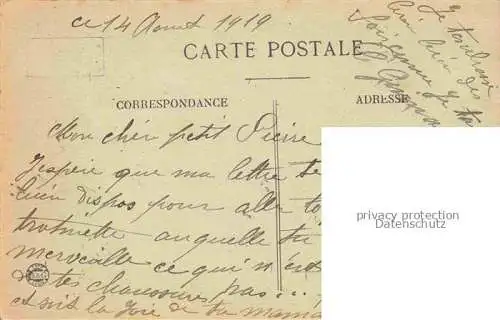 ce 14 Aout 1919
CARTE POSTALE
CORRESPONDANCE
ADRESSE
Mon cher petit Pierre
J'espère que ma lettre te
bien dispos pour aller
trotinette auquelle tu
merveille ce qui n'est
tes chaussures pas...
et soit la Joie de ta mama
Je
bien des
de
privacy protection
Datenschutz